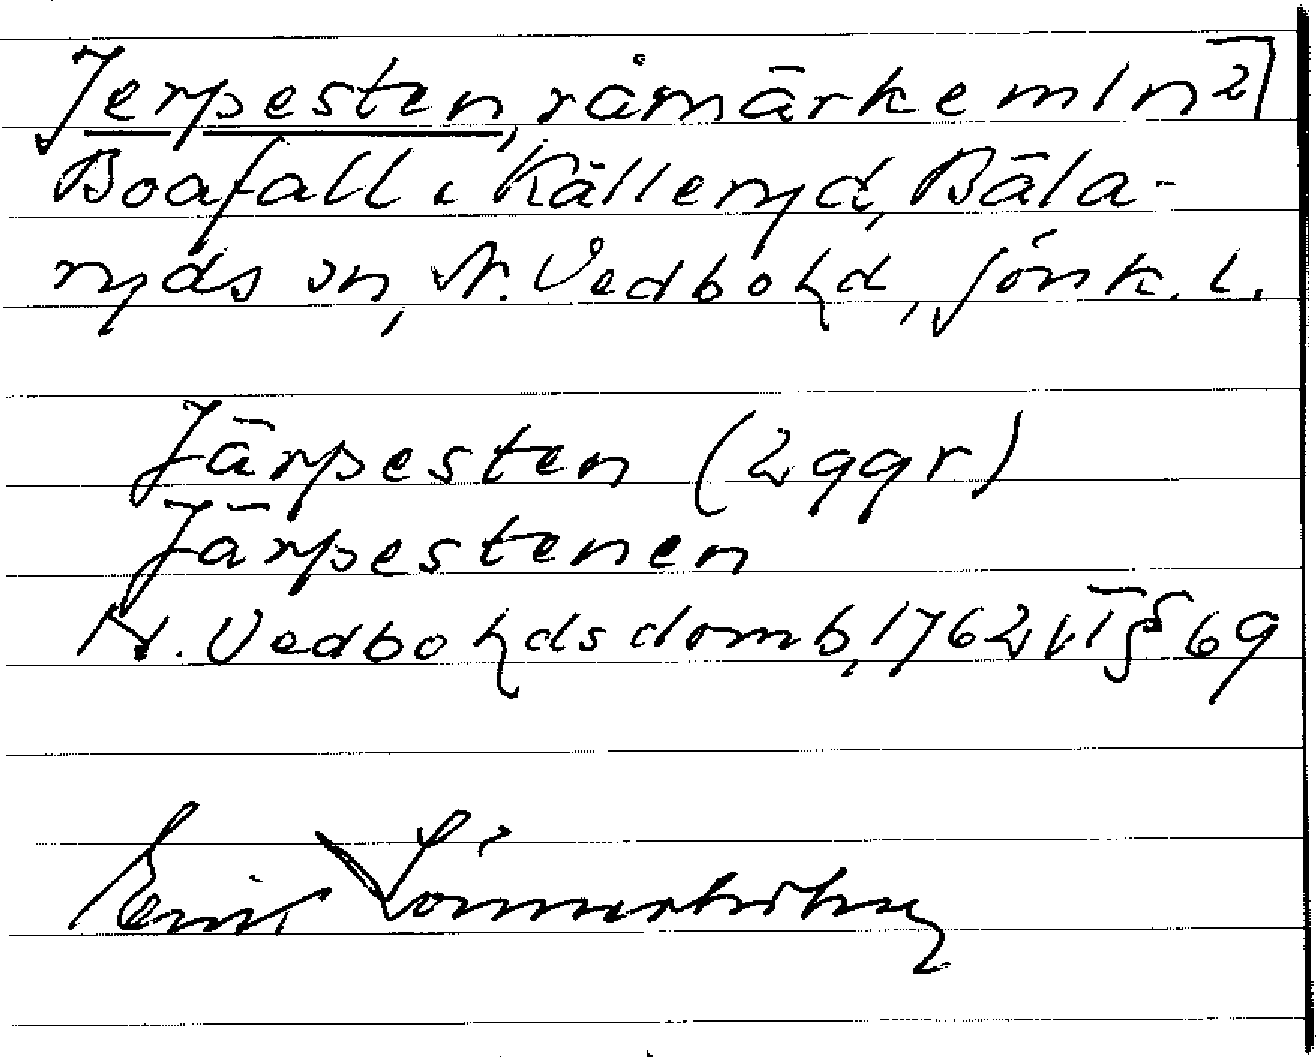 Jerpesten, råmärke mln 2
Boafall i Källeryd, Bäla-
ryds sn, N. Vedbo hd, Jönk. l.
Järpesten (2 ggr)
Järpestenen
N. Vedbo hds domb, 1762 VI § 69
Emil